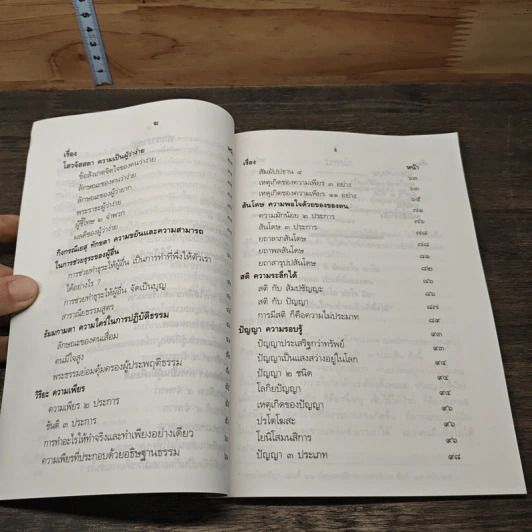 5
4
3
2
1
ฒ
เรื่อง
โสวจัสสตา ความเป็นผู้ว่าง่าย
ข้อสังเกตจิตใจของคนว่าง่าย
ลักษณะของคนว่าง่าย
ลักษณะของผู้ว่ายาก
พระราธะผู้ว่าง่าย
ผู้ชี้โทษ ๒ จำพวก
ผลดีของผู้ว่าง่าย
กิงกรณีเยสุ ทักขตา ความขยันและความสามารถ
ในการช่วยธุระของผู้อื่น
การช่วยทำธุระให้ผู้อื่น เป็นการทำที่พึ่งให้ตัวเรา
ได้อย่างไร ?
การช่วยทำธุระให้ผู้อื่น จัดเป็นบุญ
สาราณียธรรมสูตร
ธัมมกามตา ความใคร่ในการปฏิบัติธรรม
ลักษณะของคนเสื่อม
คนมีใจสูง
พระธรรมย่อมคุ้มครองผู้ประพฤติธรรม
วิริยะ ความเพียร
ความเพียร ๒ ประการ
ขันติ ๓ ประการ
การทำอะไรให้ทำจริงและทำเพียงอย่างเดียว
ความเพียรที่ประกอบด้วยอธิษฐานธรรม
เรื่อง หน้า
สัมมัปปธาน ๔ ๖๓
เหตุเกิดของความเพียร ๓ อย่าง ๖๓
เหตุเกิดของความเพียร ๑๑ อย่าง ๖๕
สันโดษ ความพอใจด้วยของของตน ๗๑
ความมักน้อย ๒ ประการ ๗๖
สันโดษ ๓ ประการ ๗๘
ยถาลาภสันโดษ ๗๘
ยถาพลสันโดษ ๘๑
ยถาสารุปปสันโดษ ๘๒
สติ ความระลึกได้ ๘๖
สติ กับ สัมปชัญญะ ๘๖
สติ กับ ปัญญา ๘๗
การมีสติ ก็คือความไม่ประมาท ๘๙
ปัญญา ความรอบรู้ ๙๓
ปัญญาประเสริฐกว่าทรัพย์ ๙๓
ปัญญาเป็นแสงสว่างอยู่ในโลก ๙๔
ปัญญา ๒ ชนิด ๙๔
โลกิยปัญญา ๙๔
เหตุเกิดของปัญญา ๙๖
ปรโตโฆสะ ๙๖
โยนิโสมนสิการ ๙๖
ปัญญา ๓ ประเภท ๙๘